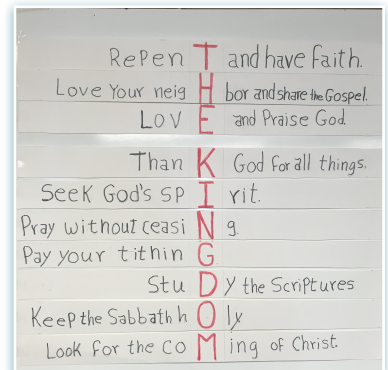 RePenT and have Faith.
Love Your neigHbor and share the Gospel.
LOVE and Praise God.
ThanK God For all things.
SeeK God's SPIrit.
Pray without ceasiNg.
Pay your tithinG
StuDy the Scriptures
KeeP the Sabbath hOly
Look For the CoMing of Christ.